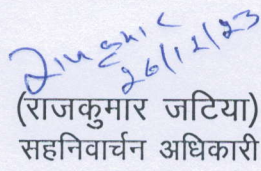 26/12/23
(राजकुमार जटिया)
सहनिवार्चन अधिकारी